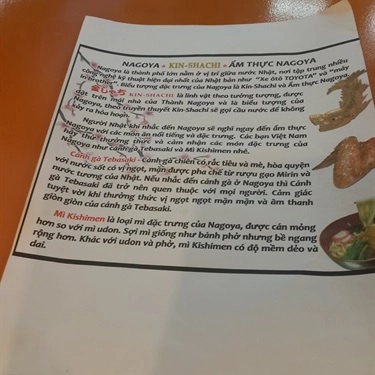 NAGOYA • KIN-SHACHI • ẨM THỰC NAGOYA
Nagoya là thành phố lớn nằm ở vị trí giữa nước Nhật, nơi tập trung nhiều
công nghệ kỹ thuật hiện đại nhất của Nhật bản như "Xe ôtô TOYOTA" và "máy
in Brother". Biểu tượng đặc trưng của Nagoya là Kin-Shachi và Ẩm thực Nagoya.
金しゃち KIN-SHACHI: là linh vật theo tưởng tượng, được
đặt trên mái nhà của Thành Nagoya và là biểu tượng của
Nagoya, theo truyền thuyết Kin-Shachi sẽ gọi cầu nước để không
xảy ra hỏa hoạn.
Người Nhật khi nhắc đến Nagoya sẽ nghĩ ngay đến ẩm thực
Nagoya với các món ăn nổi tiếng và đặc trưng. Các bạn Việt Nam
hãy thử thưởng thức và cảm nhận các món đặc trưng của
Nagoya như cánh gà Tebasaki và Mì Kishimen nhé.
Cánh gà Tebasaki - Cánh gà chiên có rắc tiêu và mè, hòa quyện
với nước sốt có vị ngọt, mặn được pha chế từ rượu gạo Mirin và
nước tương của Nhật. Nếu nhắc đến cánh gà ở Nagoya thì Cánh
gà Tebasaki đã trở nên quen thuộc với mọi người. Cảm giác
tuyệt vời khi thưởng thức vị ngọt ngọt mặn mặn và âm thanh
giòn giòn của cánh gà Tebasaki.
Mì Kishimen là loại mì đặc trưng của Nagoya, được cán mỏng
hơn so với mì udon. Sợi mì giống như bánh phở nhưng bề ngang
rộng hơn. Khác với udon và phở, mì Kishimen có độ mềm dẻo và
dai.